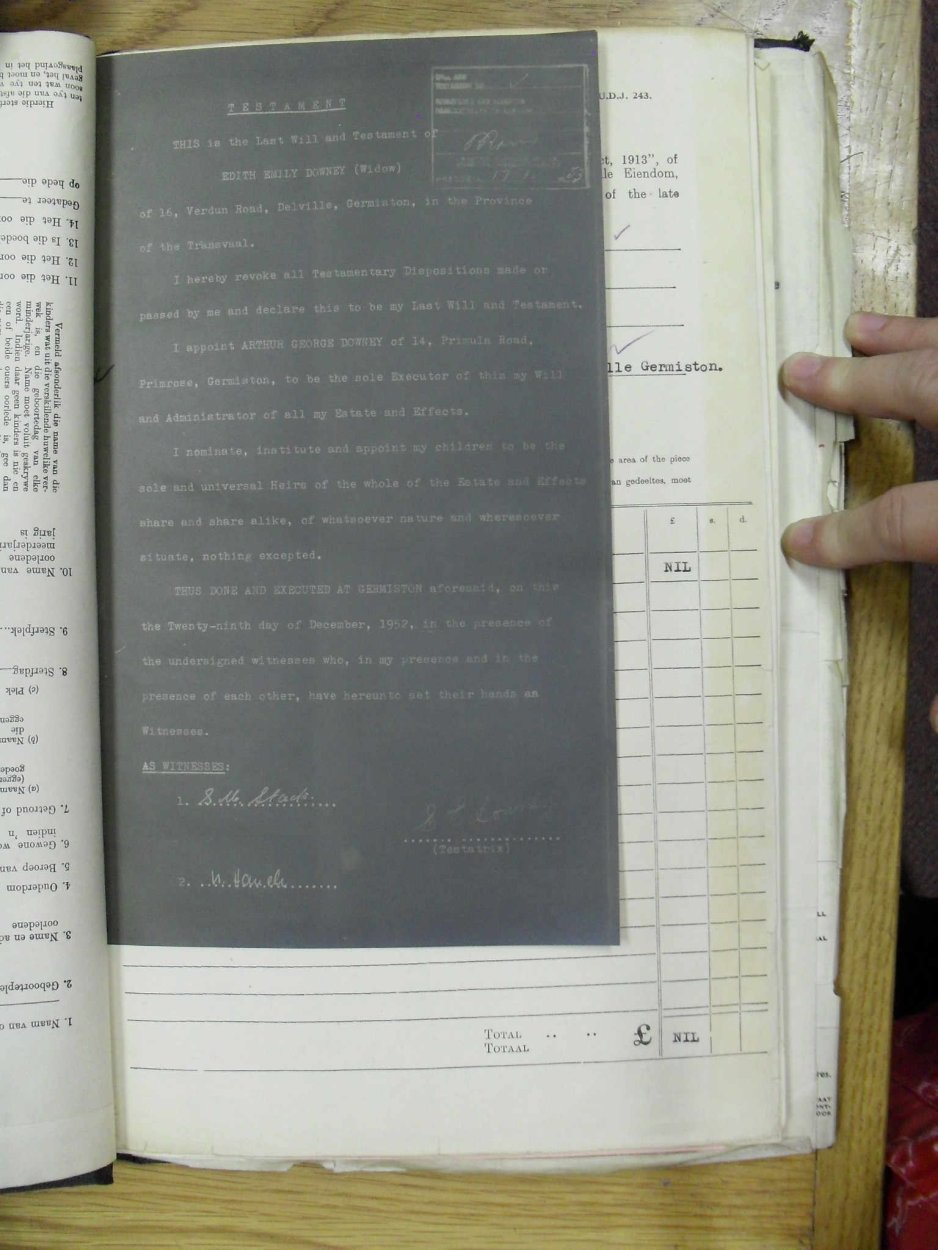 TESTAMENT
THIS is the Last Will and Testament of
EDITH EMILY DOWNEY (Widow)
of 16, Verdun Road, Delville, Germiston, in the Province
of the Transvaal.
I hereby revoke all Testamentary Dispositions made or
passed by me and declare this to be my Last Will and Testament.
I appoint ARTHUR GEORGE DOWNEY of 14, Primula Road,
Primrose, Germiston, to be the sole Executor of this my Will
and Administrator of all my Estate and Effects.
I nominate, institute and appoint my children to be the
sole and universal Heirs of the whole of the Estate and Effects
share and share alike, of whatsoever nature and wheresoever
situate, nothing excepted.
THUS DONE AND EXECUTED AT GERMISTON aforesaid, on this
the Twenty-ninth day of December, 1952, in the presence of
the undersigned witnesses who, in my presence and in the
presence of each other, have hereunto set their hands as
Witnesses.
AS WITNESSES:
1.
(Testatrix)
2.
U.D.J. 243.
ct, 1913”, of
le Eiendom,
of the late
lle Germiston.
e area of the piece
an gedeeltes, moet
£ s. d.
NIL
TOTAL .. .. £ NIL
TOTAAL
Hierdie
ten tye van die
soon wat ten tye
geval het, en moet
plaasgevind het in
op hede die
Gedateer te
14. Het die
13. Is die
12. Het die
11. Het die
Vermeld afsonderlik die name van die
kinders wat uit die verskillende huwelike ver-
wek is, en die geboortedag van elke
minderjarige. Name moet voluit geskrywe
word. Indien daar geen kinders is nie en
een of beide ouers oorlede is, gee dan
jarig is
oorledene
10. Name van
9. Sterfplek
8. Sterfdag
(c) Plek
die
(b) Naam
(a) Naam
7. Getroud of
indien 'n
6. Gewone
5. Beroep van
4. Ouderdom
oorledene
3. Name en
2.
1. Naam van